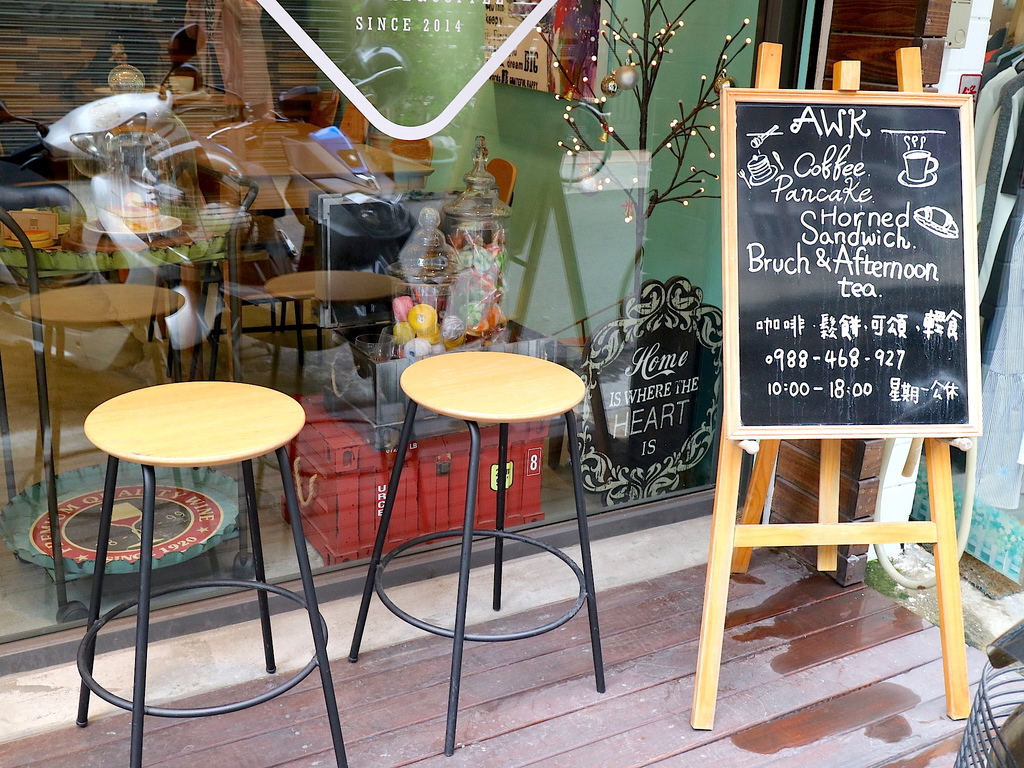 SINCE 2014
BIG
AWK
Coffee
Pancake
SHorned
Sandwich.
Bruch & Afternoon
tea.
咖啡·鬆餅·可頌·輕食
0988-468-927
10:00-18:00 星期一公休
Home
IS WHERE THE
HEART
IS
8
PREMIUM QUALITY WINE
SINCE 1920